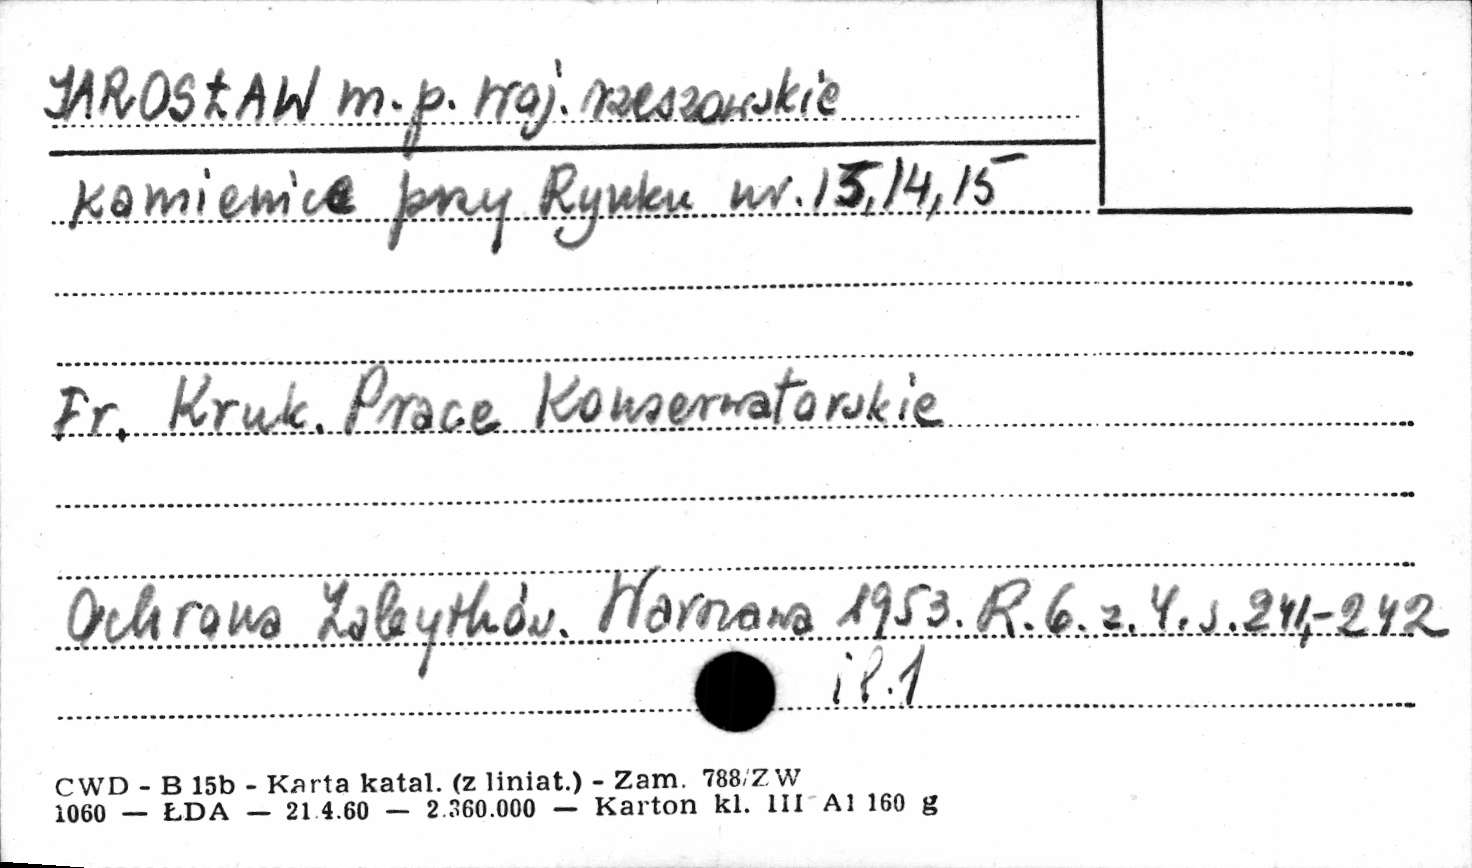 JAROSŁAW m. p. woj. rzeszowskie
kamienice przy Rynku nr. 13, 14, 15
Fr. Kruk. Prace Konserwatorskie
Ochrona Zabytków. Warszawa 1953. R. 6. z. 4. s. 241,-242
il. 1
CWD - B 15b - Karta katal. (z liniat.) - Zam. 788/ZW
1060 — ŁDA — 21.4.60 — 2.360.000 — Karton kl. III A1 160 g